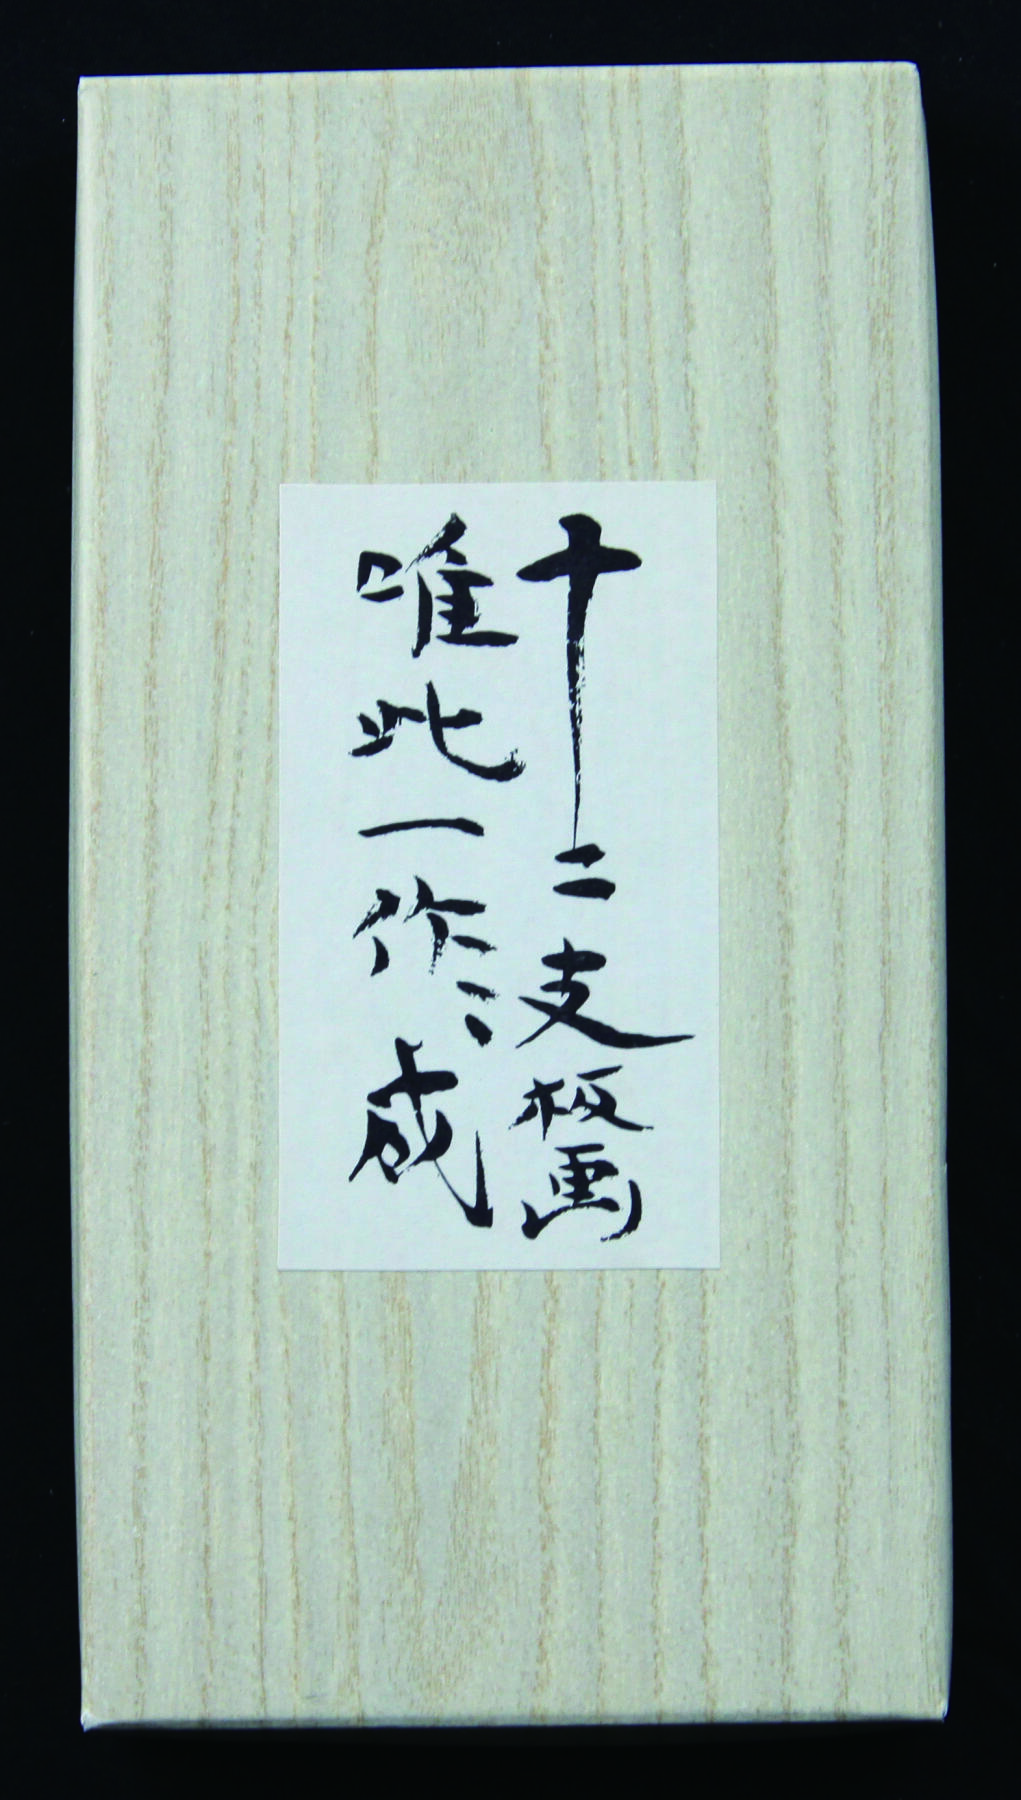 十二支板画
唯此一作ミ成